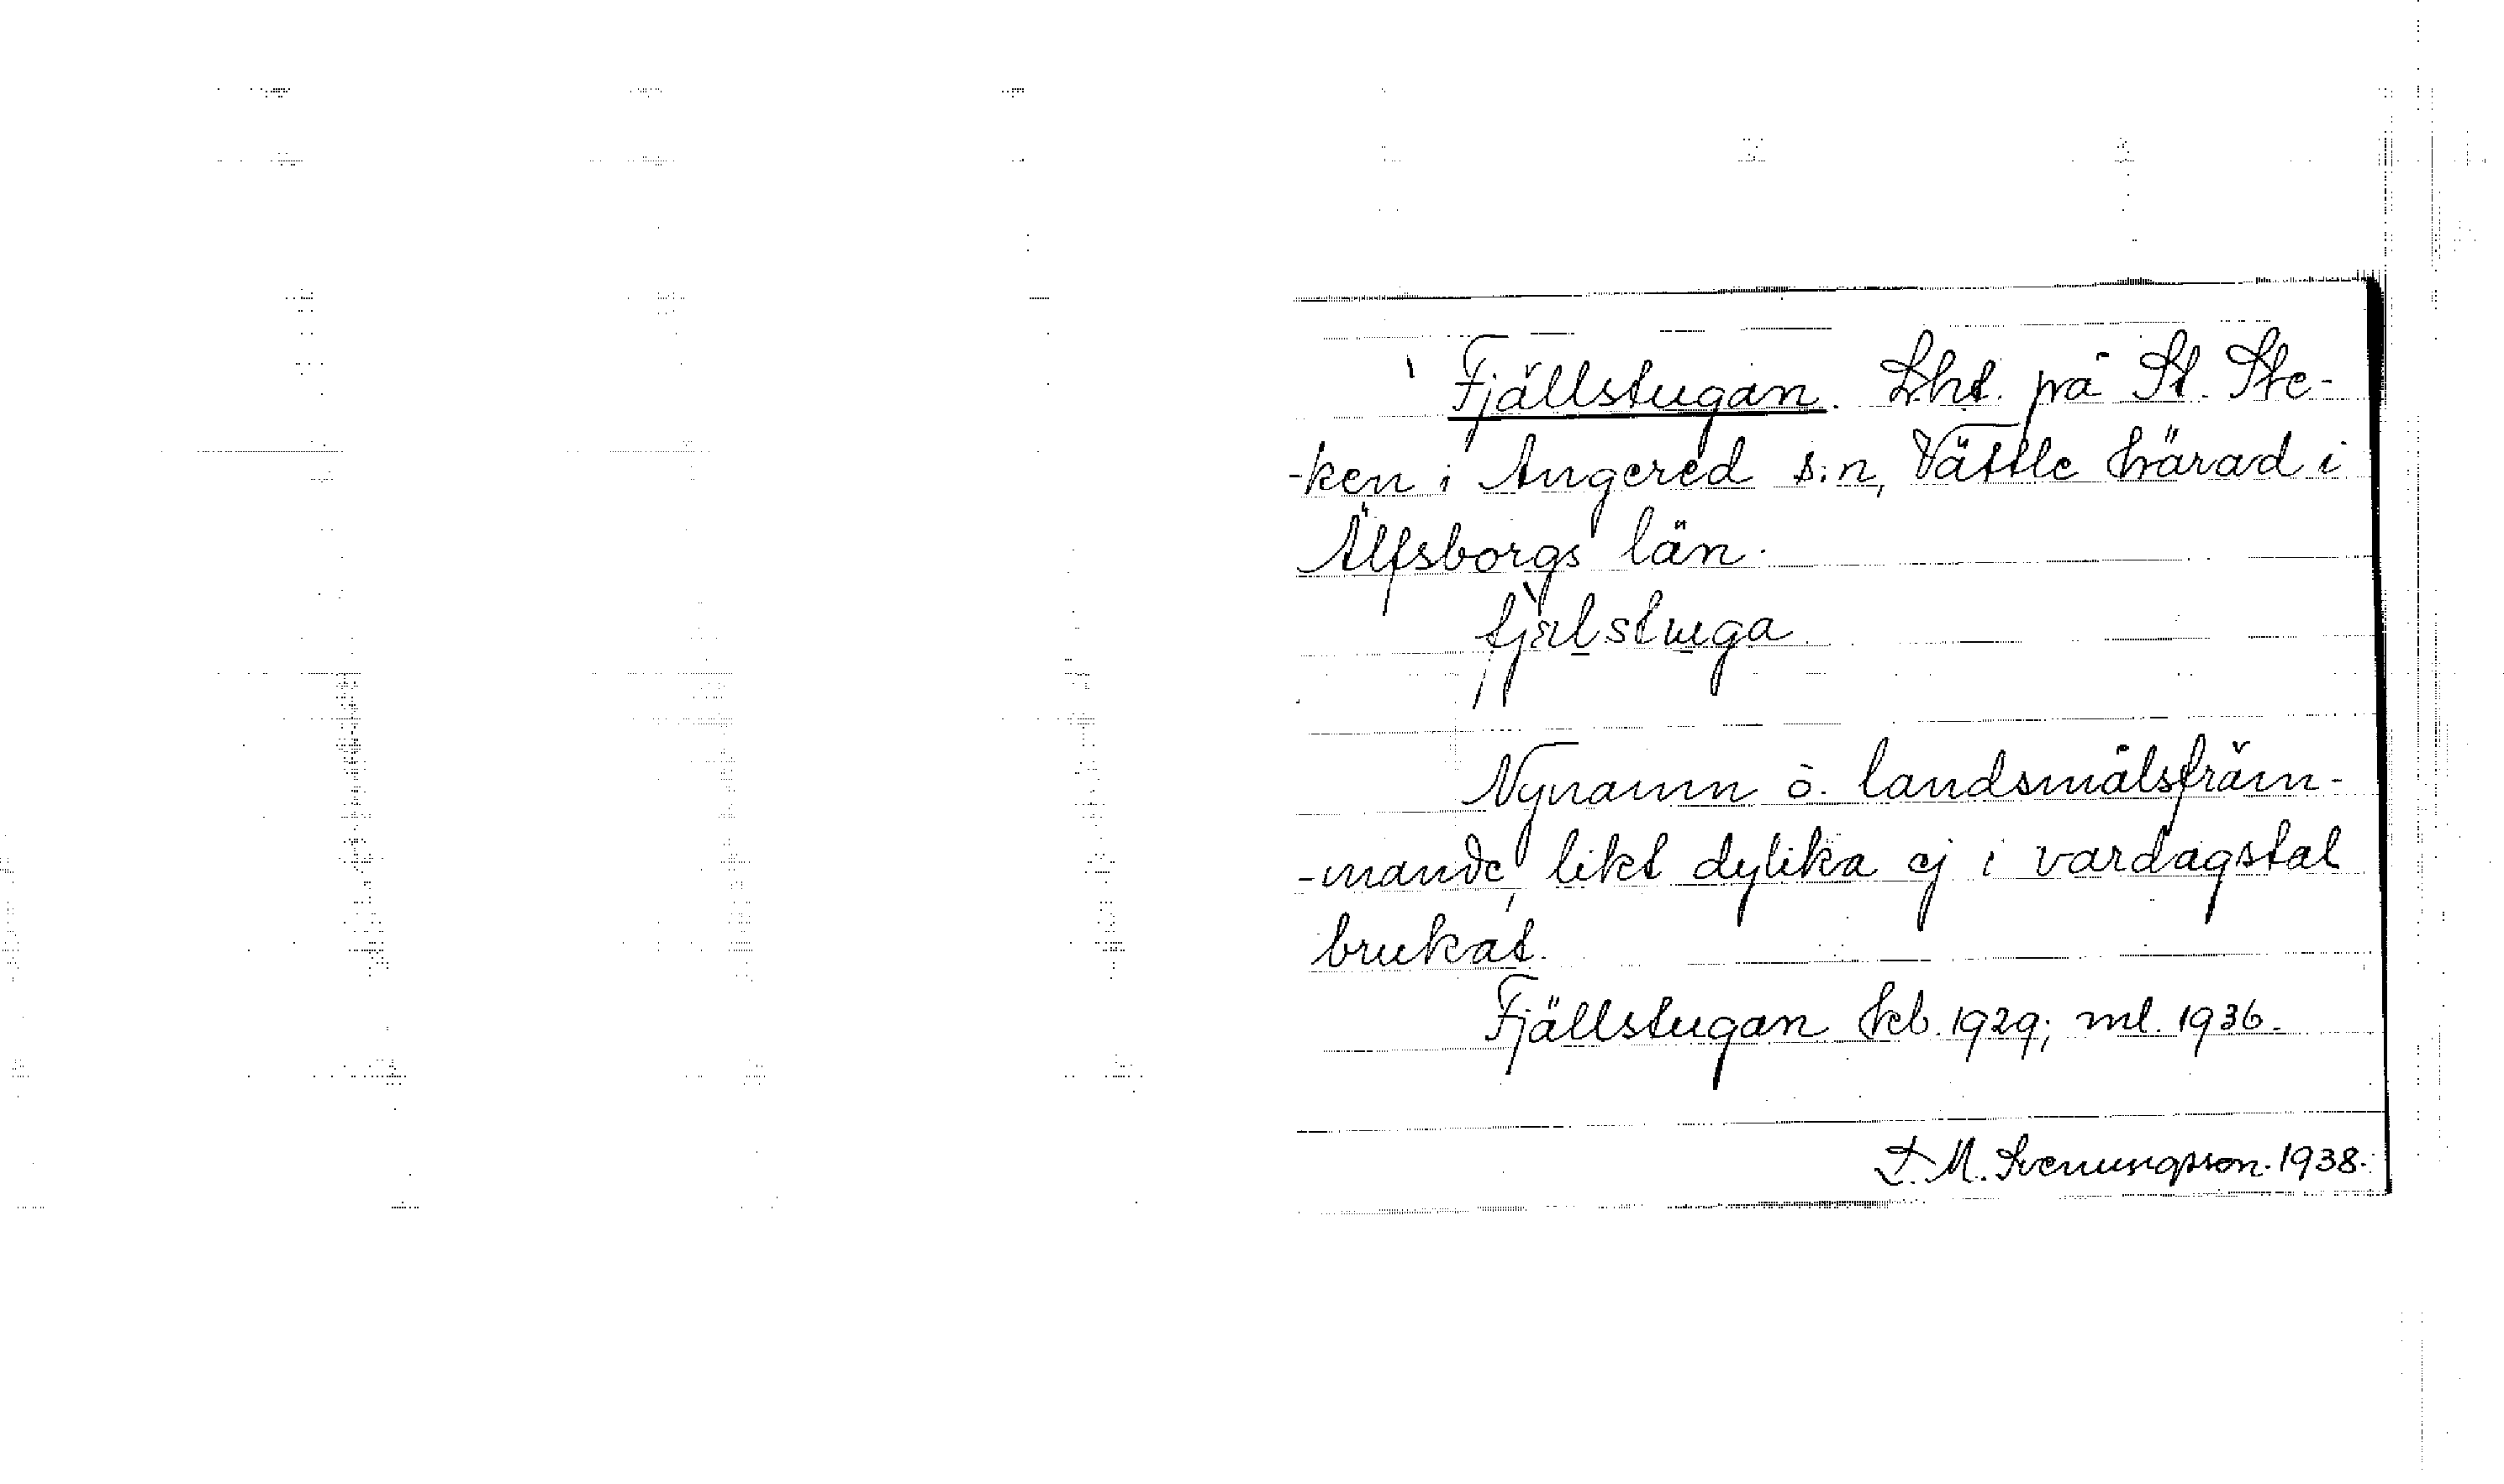 Fjällstugan. Lht. på St. Ste-
-ken i Angered s:n, Vättle härad i
Älfsborgs län.
Nynamn o. landsmålsfräm-
-mande, likt dylika ej i vardagstal
brukat.
Fjällstugan kb. 1929; ml. 1936.
M. Svenungsson. 1938.